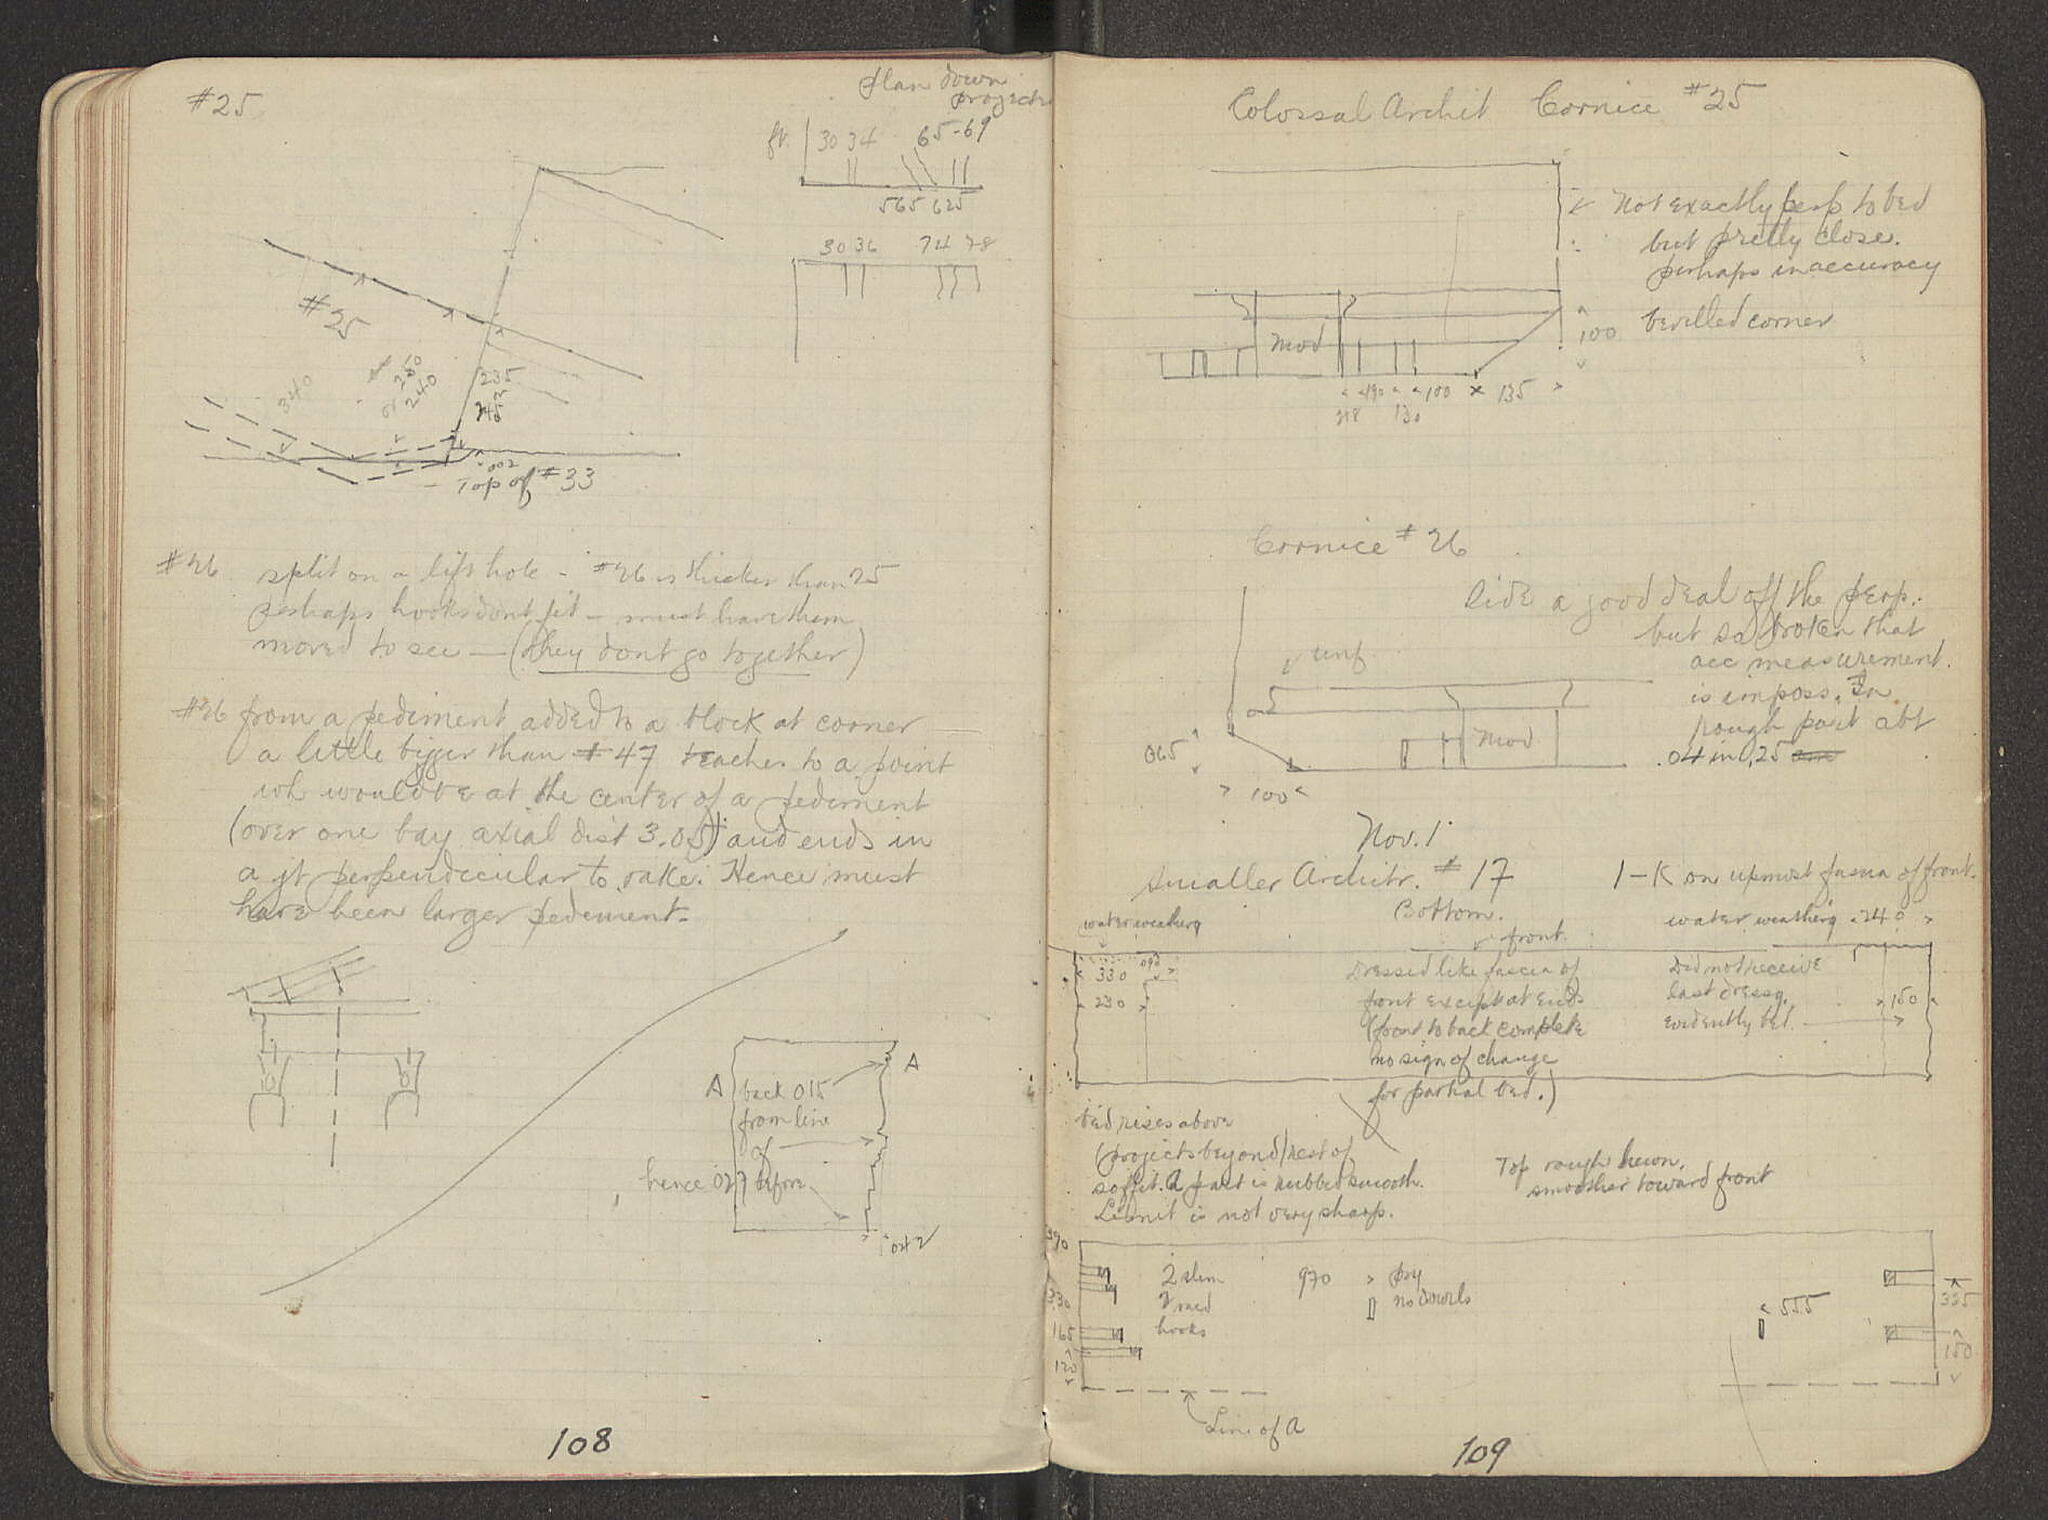 #25
plan down
projects
ft. 30 34 65-69
565 625
30 36 74 78
#25
340
250
or 240
235
245
.002
Top of #33
#26 split on a lift hole - #26 is thicker than 25
perhaps hooks dont fit - must have them
moved to see - (they dont go together)
#26 from a pediment added to a block at corner -
a little bigger than #47 reaches to a point
wh would be at the center of a pediment
(over one bay axial dist 3.05) and ends in
a jt perpendicular to rake. Hence must
have been larger pediment.
A
A
back 015
from line
of
hence 027 before
.042
108
Colossal Archit Cornice #25
Not exactly perp to bed
but pretty close.
perhaps inaccuracy
bevelled corner
100
Mod
190 100 x 135
218 130
Cornice #26
Side a good deal off the perp.:
but so broken that
acc measurement.
is imposs. In
rough part abt
.04 in 0,25
unf
Mod
065
100
Nov. 1
Smaller Architr. #17
1-K on upmost fascia of front.
Bottom.
water weatherg
water weatherg .240
front
330
090
230
Dressed like fascia of
front except at ends
(front to back complete
no sign of change
for partial bed.)
Did not receive
last dressg.
evidently bed
150
bed rises above
(projects beyond) rest of
soffit. A part is rubbed smooth.
Limit is not very sharp.
Top rough hewn,
smoother toward front
390
330
165
120
2 slim
2 med
hooks
970
pry
no dowels
555
335
150
Line of A
109